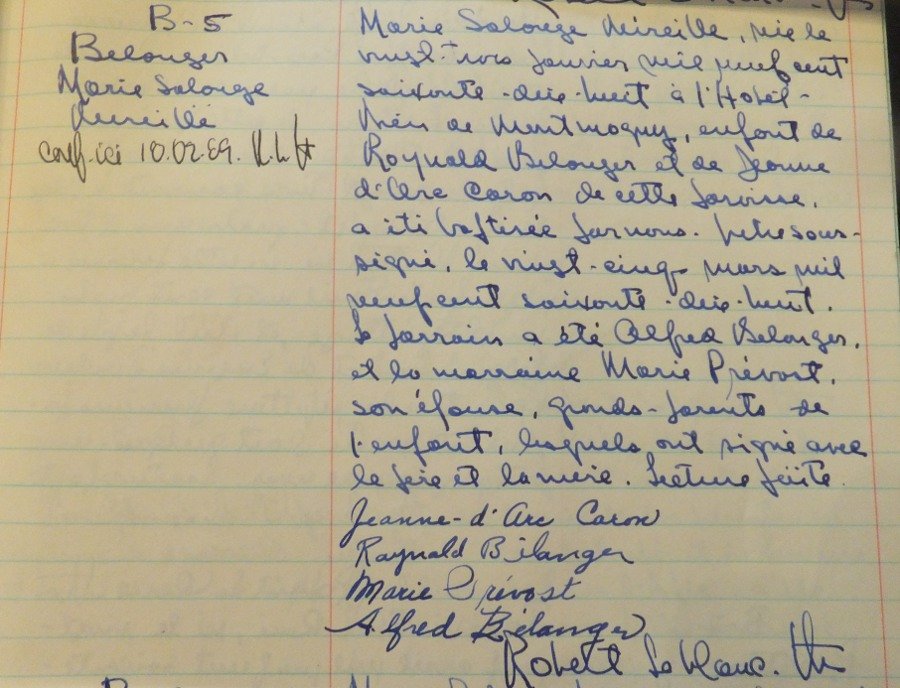 B-5
Belanger
Marie Solange
Mireille
conf. ici 10.02.89.
Marie Solange Mireille, née le
vingt-trois janvier mil neuf cent
soixante-dix-huit à l'Hôtel-
Dieu de Montmagny, enfant de
Raynald Belanger et de Jeanne
d'Arc Caron de cette paroisse,
a été baptisée par nous. prêtre sous-
signé, le vingt-cinq mars mil
neuf cent soixante-dix-huit.
Le parrain a été Alfred Belanger,
et la marraine Marie Prévost,
son épouse, grands-parents de
l'enfant, lesquels ont signé avec
le père et la mère. Lecture faite.
Jeanne-d'Arc Caron
Raynald Bélanger
Marie Prévost
Alfred Bélanger
Robert Leblanc.